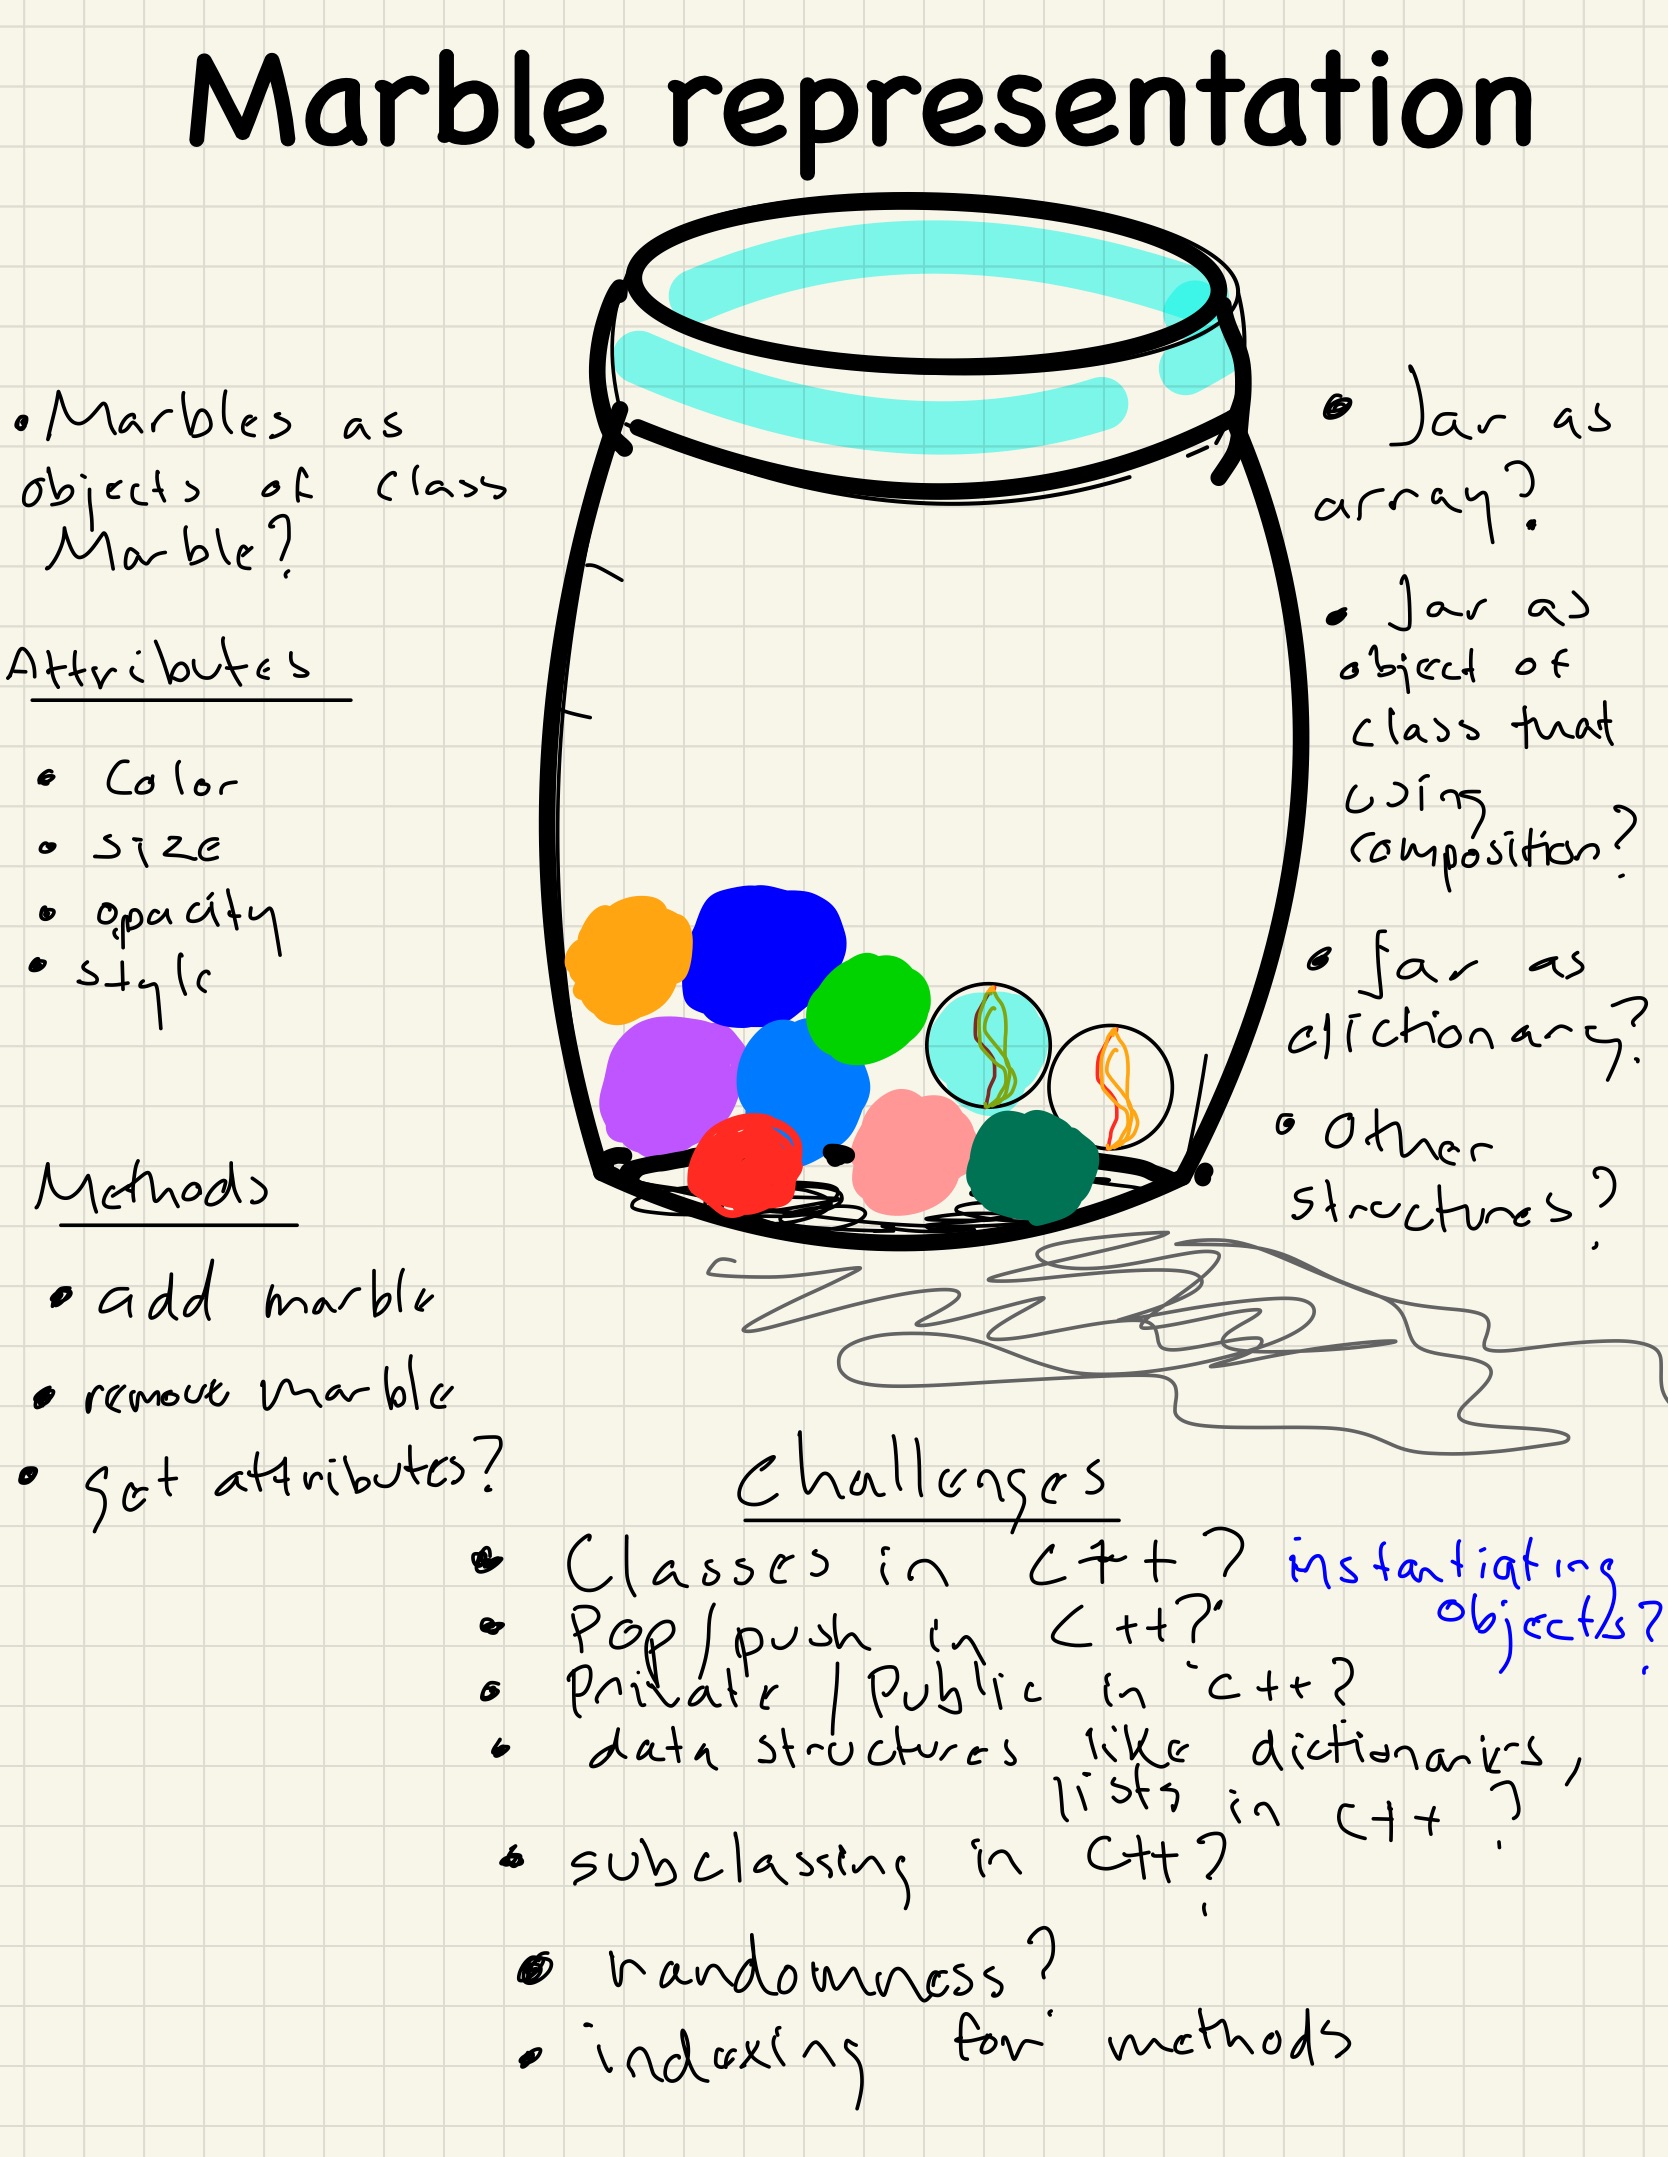 Marble representation
• Marbles as
objects of class
Marble?
Attributes
• Color
• size
• opacity
• style
Methods
• add marble
• remove marble
• get attributes?
• Jar as
array?
• Jar as
object of
class that
using
composition?
• Jar as
dictionary?
• Other
structures?
Challenges
• Classes in C++? instantiating
objects?
• Pop/push in C++?
• Private/Public in C++?
• data structures like dictionaries,
lists in C++?
• subclassing in C++?
• randomness?
• indexing for methods